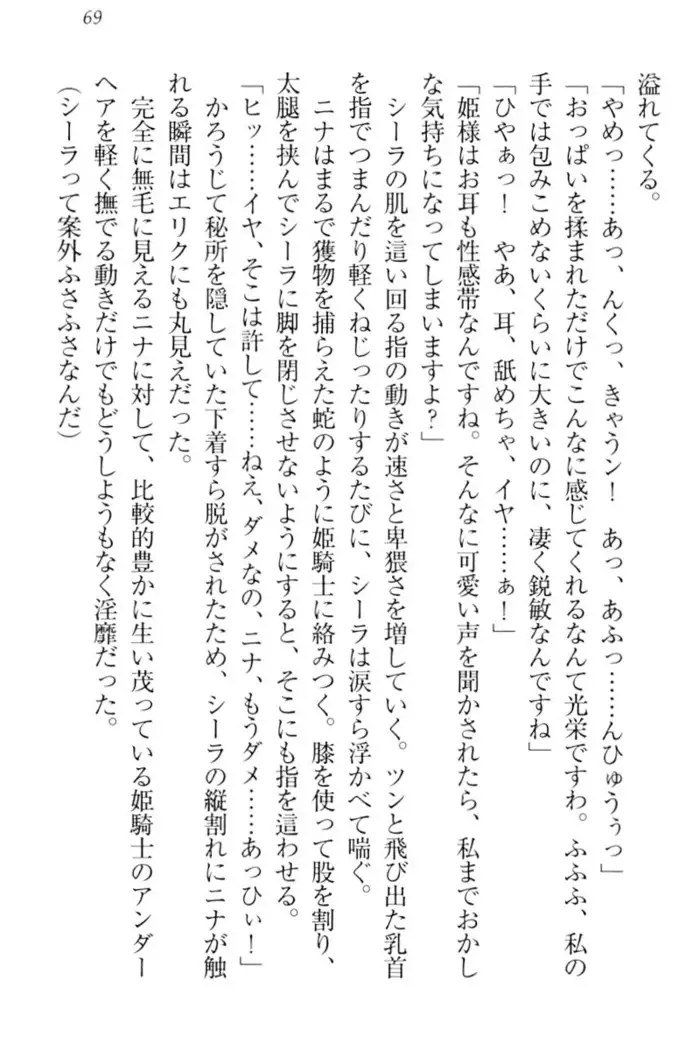 69
溢れてくる。
「やめっ……あっ、んくっ、きゃうン！　あっ、あふっ……んひゅうぅっ」
「おっぱいを揉まれただけでこんなに感じてくれるなんて光栄ですわ。ふふふ、私の
手では包みこめないくらいに大きいのに、凄く鋭敏なんですね」
「ひやぁっ！　やあ、耳、舐めちゃ、イヤ……ぁ！」
「姫様はお耳も性感帯なんですね。そんなに可愛い声を聞かされたら、私までおかし
な気持ちになってしまいますよ？」
　シーラの肌を這い回る指の動きが速さと卑猥さを増していく。ツンと飛び出た乳首
を指でつまんだり軽くねじったりするたびに、シーラは涙すら浮かべて喘ぐ。
　ニナはまるで獲物を捕らえた蛇のように姫騎士に絡みつく。膝を使って股を割り、
太腿を挟んでシーラに脚を閉じさせないようにすると、そこにも指を這わせる。
「ヒッ……イヤ、そこは許して……ねえ、ダメなの、ニナ、もうダメ……あっひぃ！」
　かろうじて秘所を隠していた下着すら脱がされたため、シーラの縦割れにニナが触
れる瞬間はエリクにも丸見えだった。
　完全に無毛に見えるニナに対して、比較的豊かに生い茂っている姫騎士のアンダー
ヘアを軽く撫でる動きだけでもどうしようもなく淫靡だった。
（シーラって案外ふさふさなんだ）